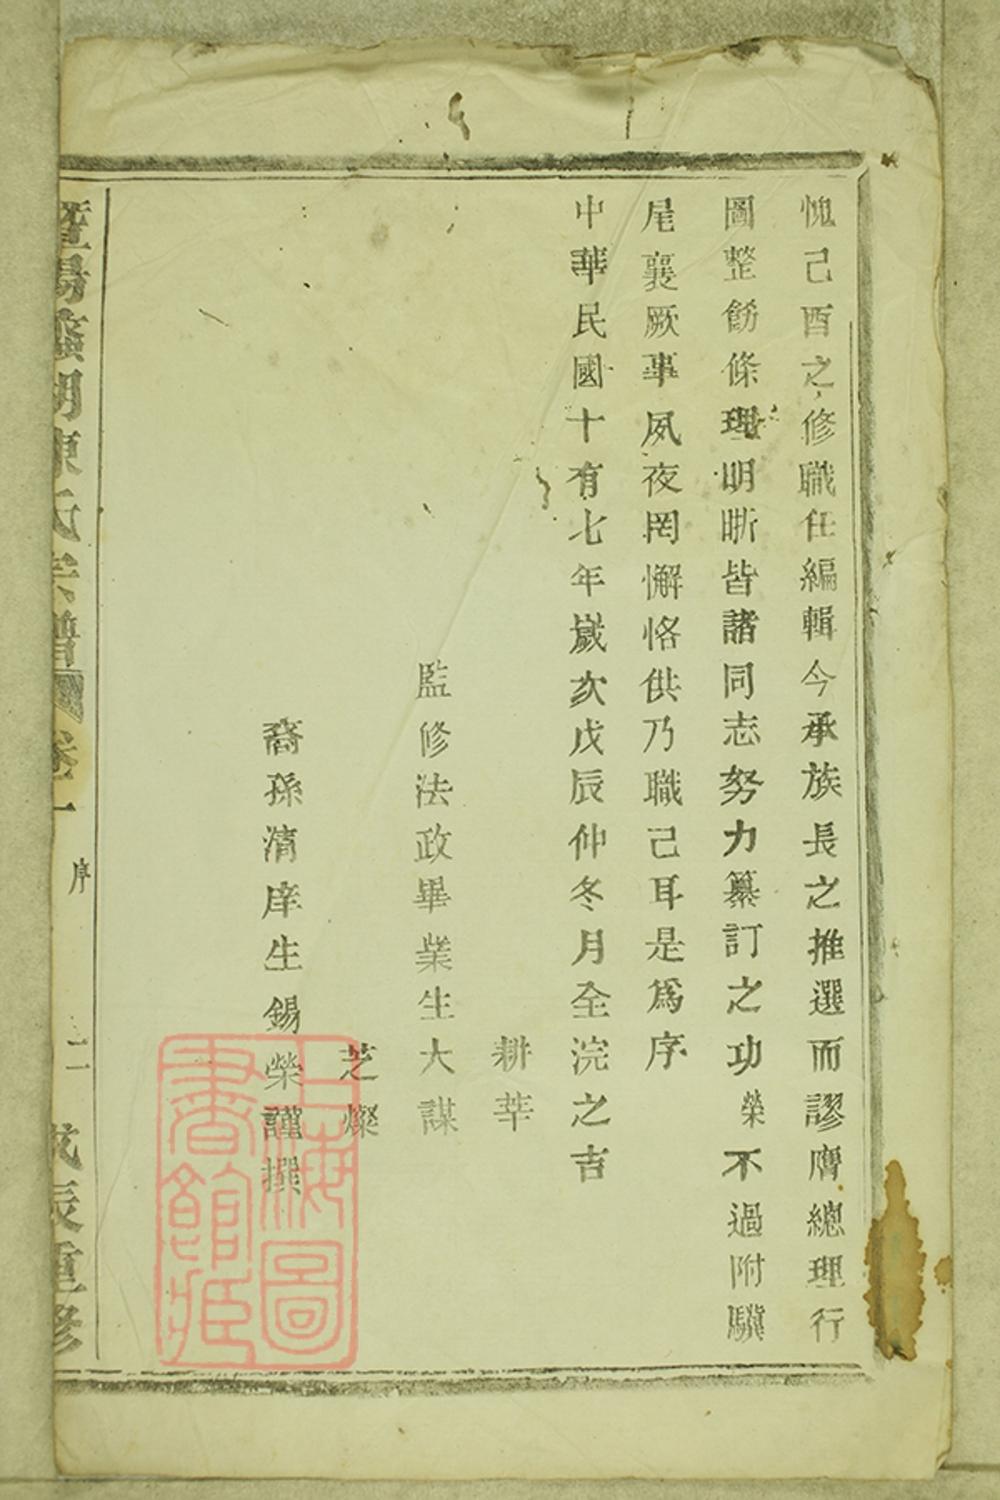 愧己酉之修職任編輯今承族長之推選而謬膺總理行
圖整飭條理明晣皆諸同志努力纂訂之功榮不過附驥
尾襄厥事夙夜罔懈恪供乃職己耳是為序
中華民國十有七年歲次戊辰仲冬月全浣之吉
耕莘
監修法政畢業生大謀
芝燦
裔孫清庠生錫榮謹撰
暨陽 湖陳氏宗譜 卷一 序 二 戊辰重修
上海圖書館藏